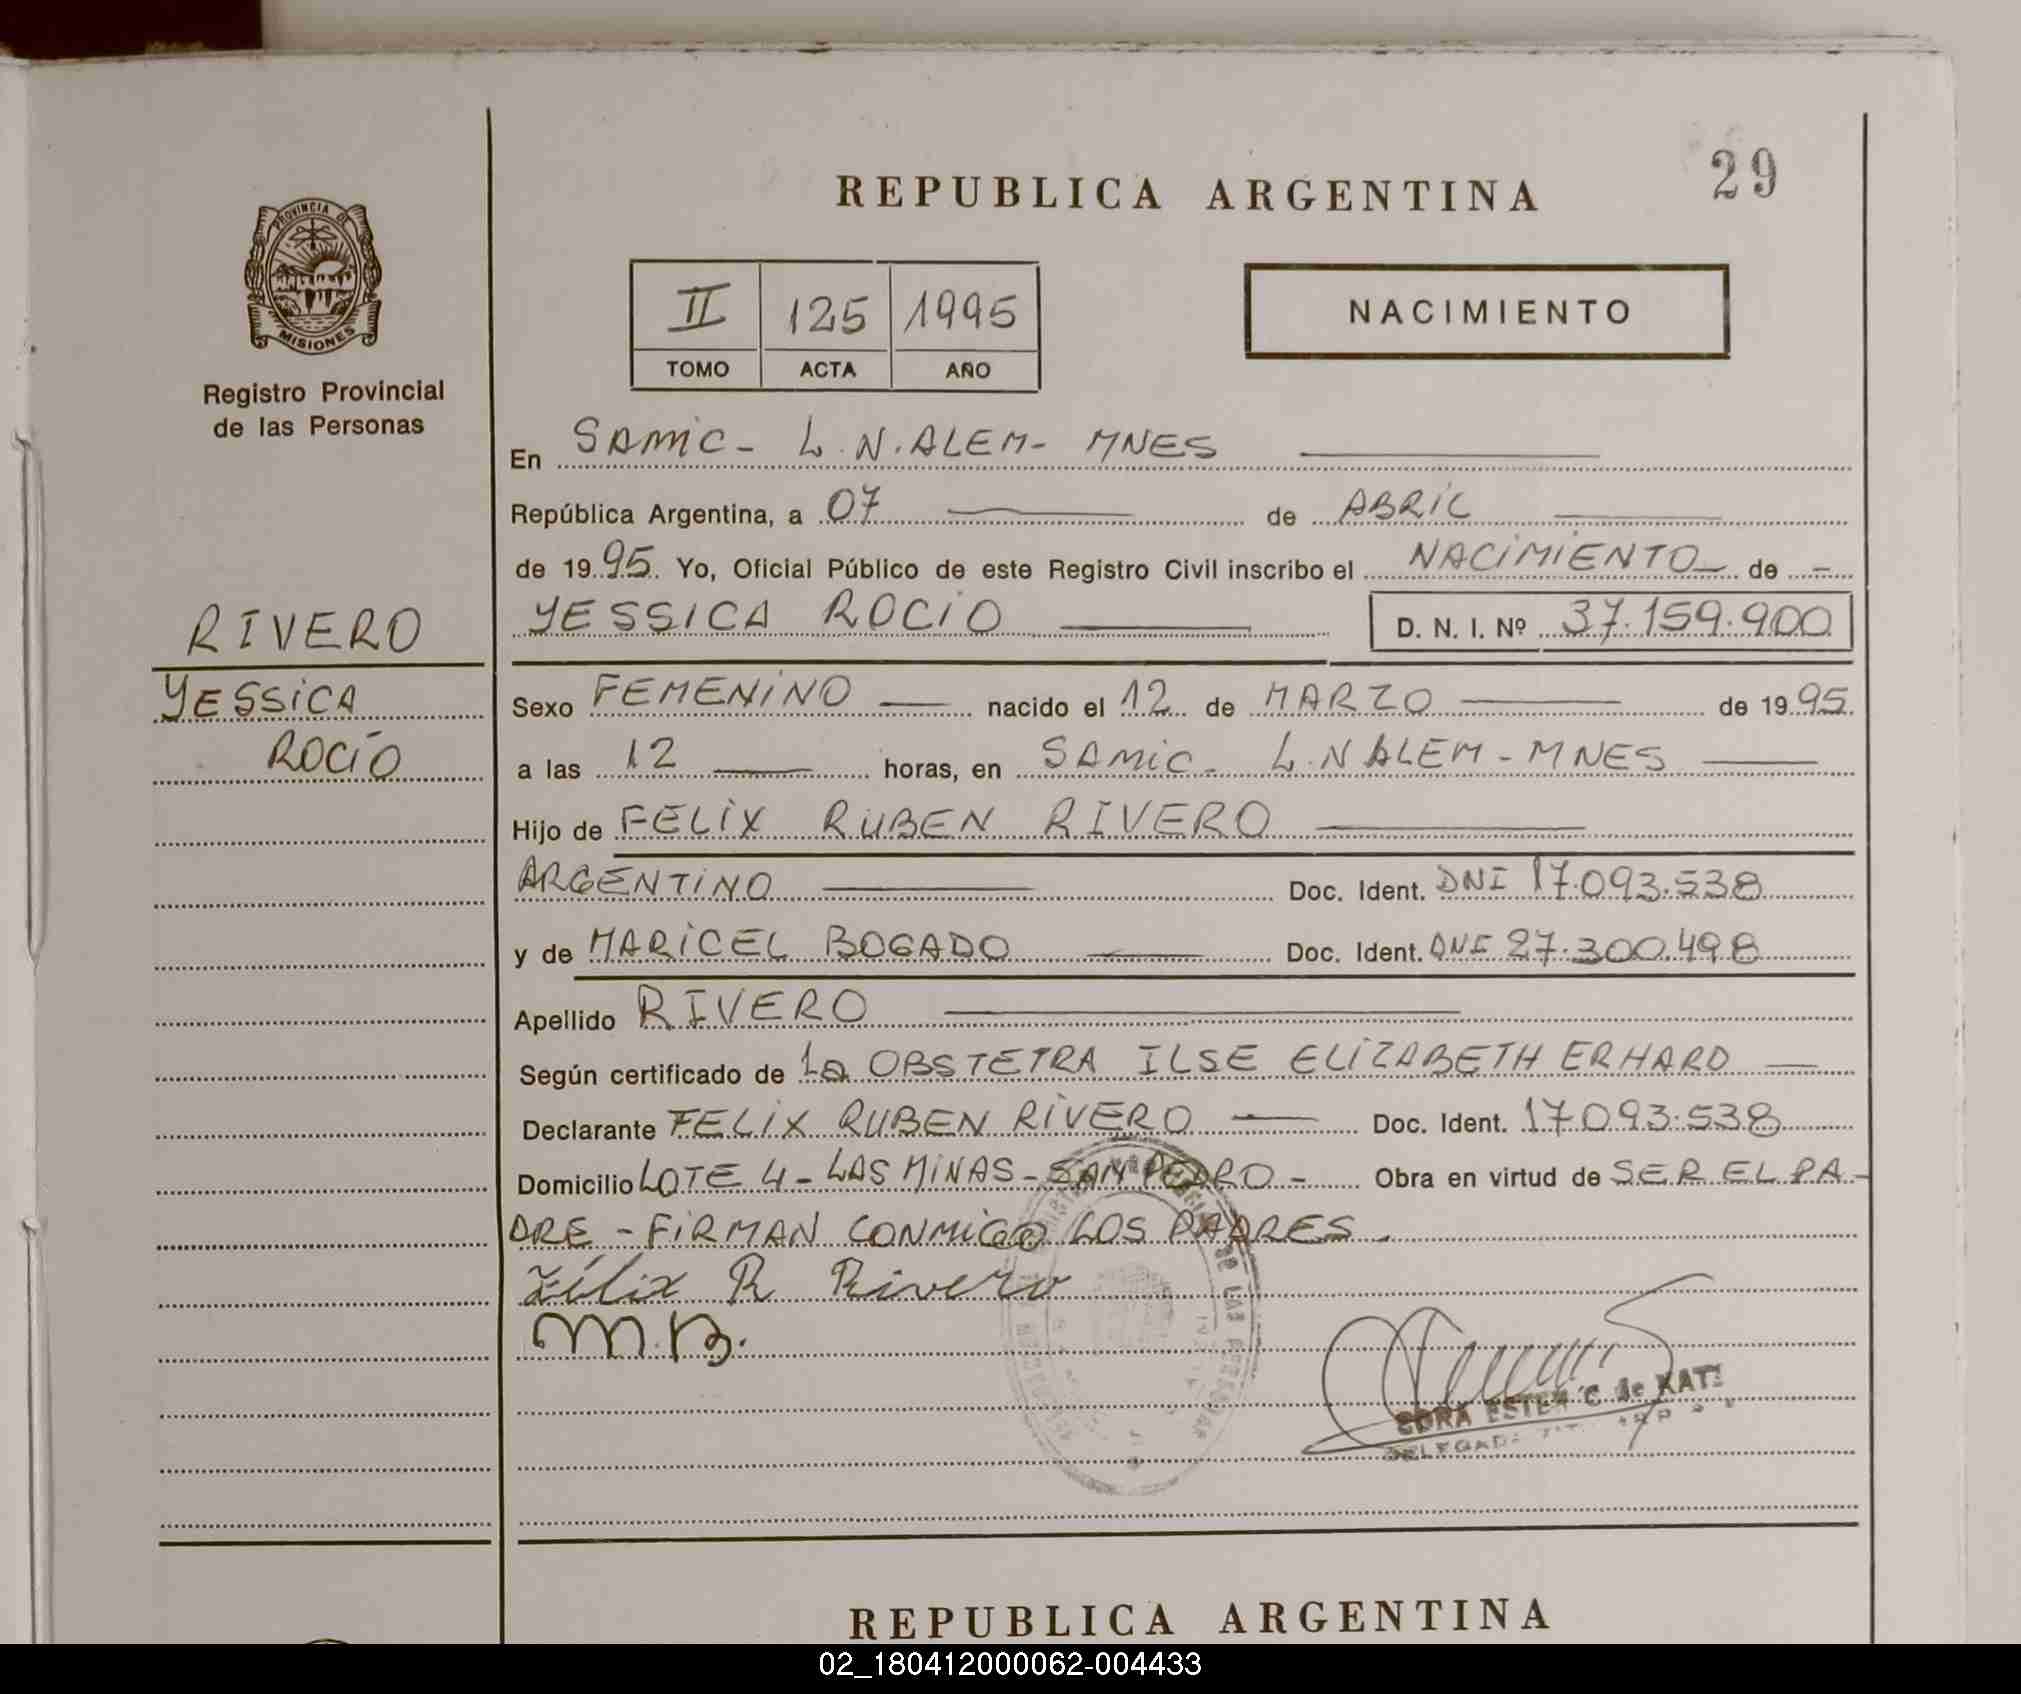 29
REPUBLICA ARGENTINA
PROVINCIA DE
MISIONES
Registro Provincial
de las Personas
II 125 1995
TOMO ACTA AÑO
NACIMIENTO
En SAMIC - L.N.ALEM - MNES
República Argentina, a 07 de ABRIL
de 1995. Yo, Oficial Público de este Registro Civil inscribo el NACIMIENTO de -
YESSICA ROCIO D. N. I. Nº 37.159.900
RIVERO
YESSICA
ROCÍO
Sexo FEMENINO nacido el 12 de MARZO de 1995.
a las 12 horas, en SAMIC - L.N ALEM - MNES
Hijo de FELIX RUBEN RIVERO
ARGENTINO Doc. Ident. DNI 17.093.538
y de MARICEL BOGADO Doc. Ident. DNI 27.300.498
Apellido RIVERO
Según certificado de La OBSTETRA ILSE ELIZABETH ERHARD
Declarante FELIX RUBEN RIVERO Doc. Ident. 17.093.538
Domicilio LOTE 4 - LAS MINAS - SAN PEDRO - Obra en virtud de SER EL PA-
DRE - FIRMAN CONMIGO LOS PADRES.
Félix R Rivero
M.B.
ESTER C de KATZ
REPUBLICA ARGENTINA
02_180412000062-004433